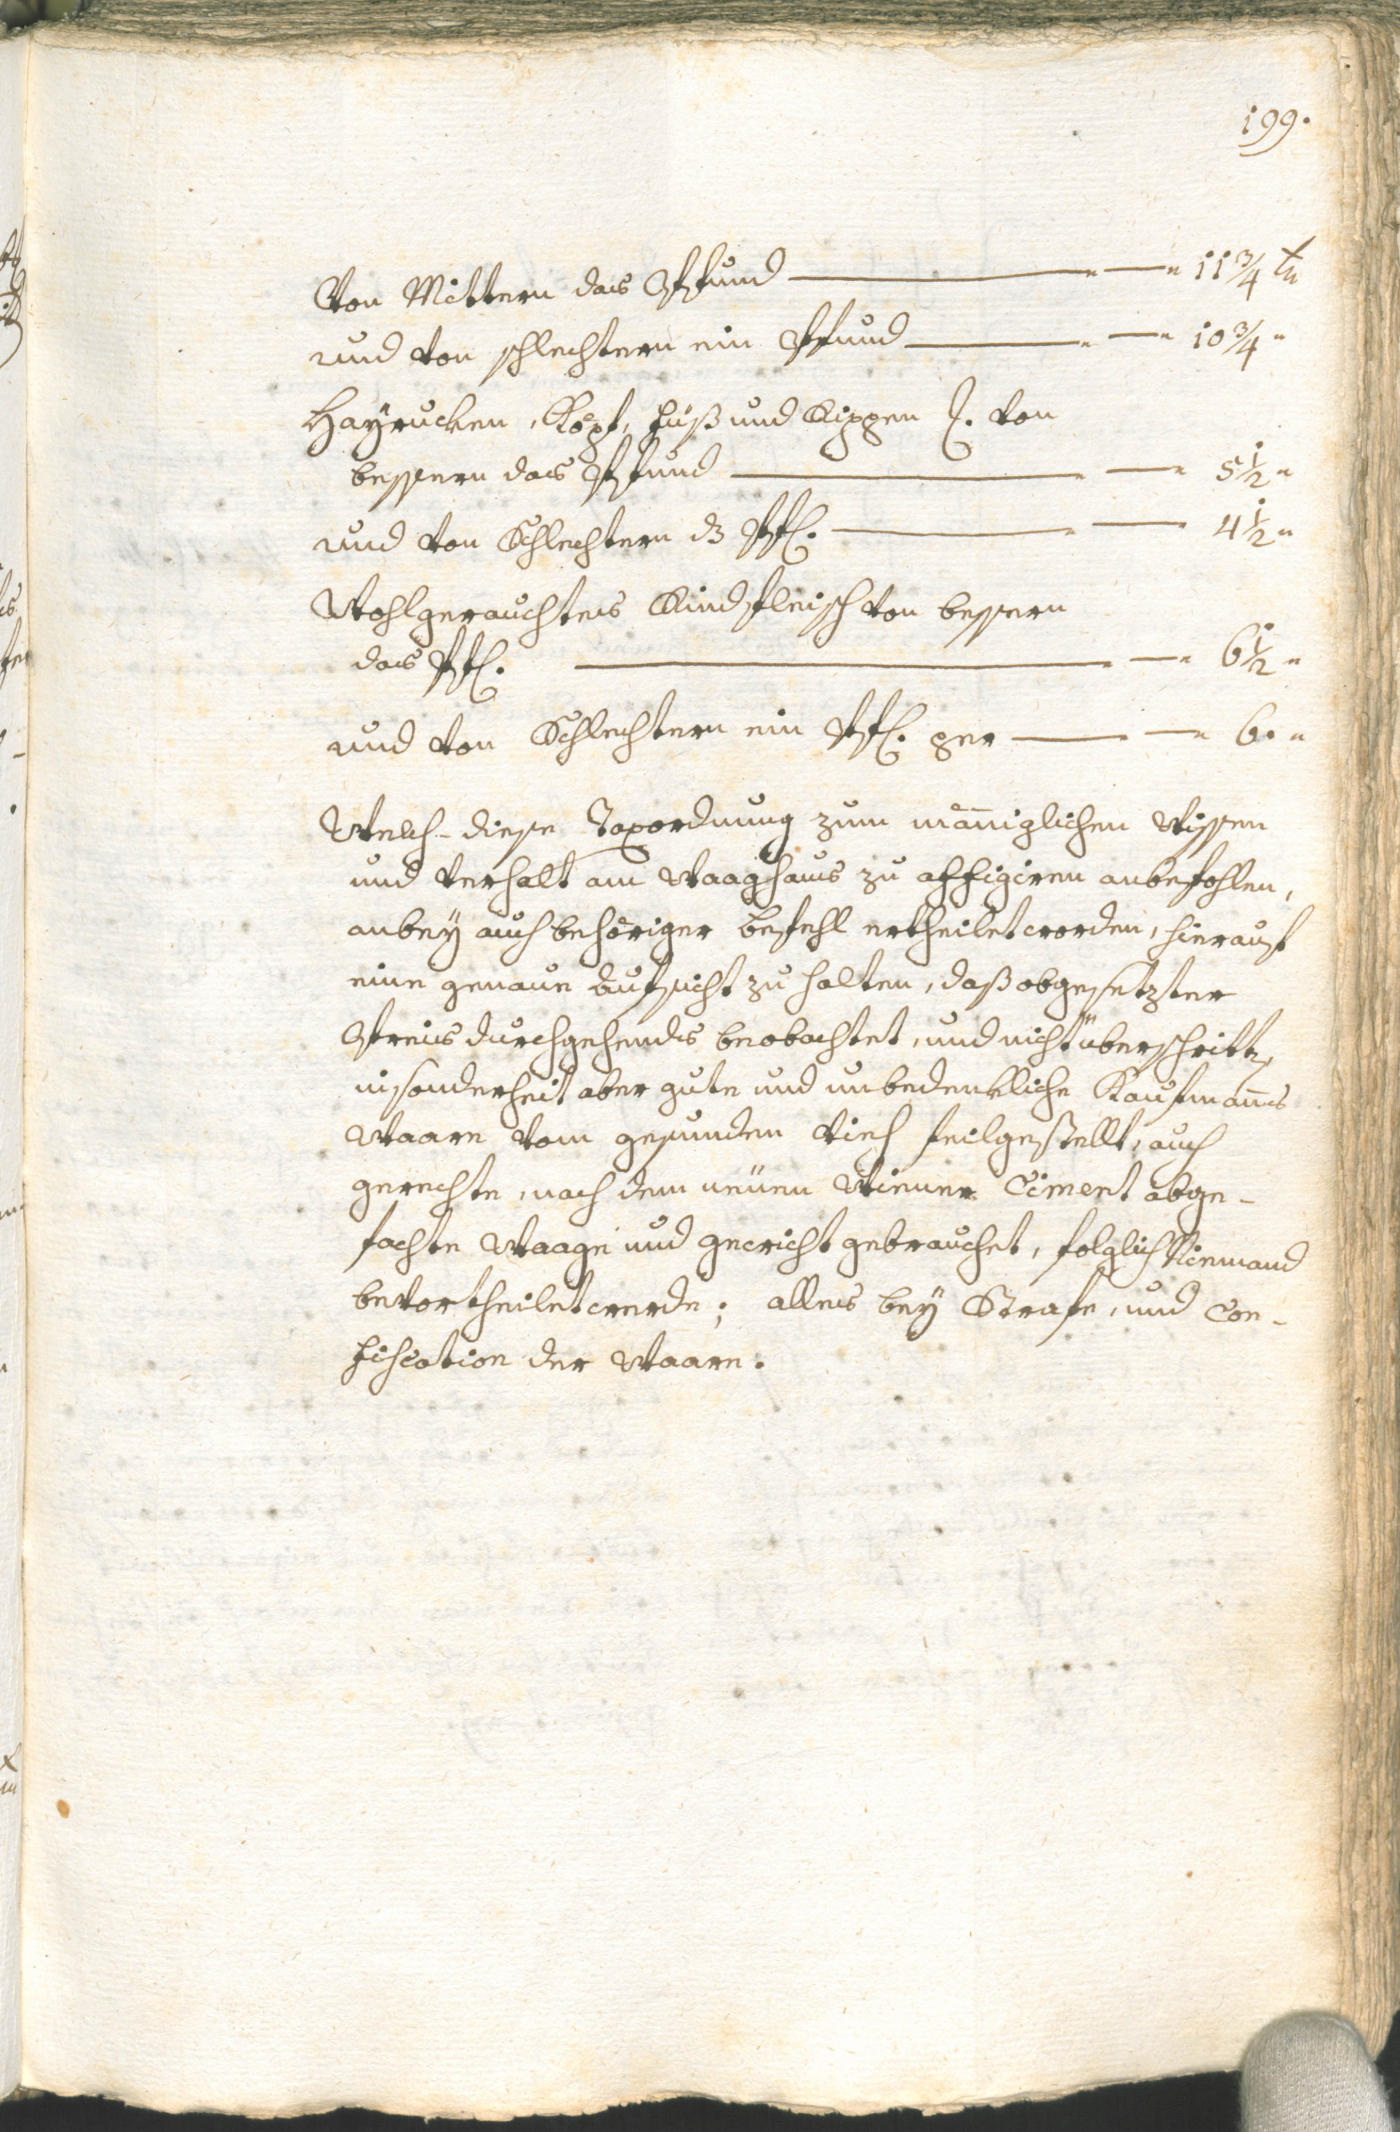 199.
Von Mittern das Pfund — " — " 11 3/4 xr
und von schlechtern ein Pfund — " — " 10 3/4 "
Hayrucken, Köpf, Füß und Rippen ſ. von
bessern das Pfund — " — " 5 1/2 "
und von Schlechtern dz Pfſ. — " — " 4 1/2 "
Wohlgerauchtes Rindfleisch von bessern
das Pfſ. — " — " 6 1/2 "
und von Schlechtern ein Pfſ. per — " — " 6. "
Welch-diese Taxordnung zum mäniglichen Wissen
und Verhalt am Waaghaus zu affigiren anbefohlen,
anbey auch behöriger Befehl ertheilet worden, hierauf
eine genaue Aufsicht zu halten, daß obgesetzter
Preis durchgehends beobachtet, und nicht überschritt,
insonderheit aber gute und unbedenkliche Kaufmans
Waare vom gesunden Vieh feilgestellt, auch
gerechte, nach dem neüen Wiener Ciment abge-
fachte Waage und gewicht gebrauchet, folglich Niemand
bevortheilet werde; alles bey Strafe, und Con-
fiscation der Waare.